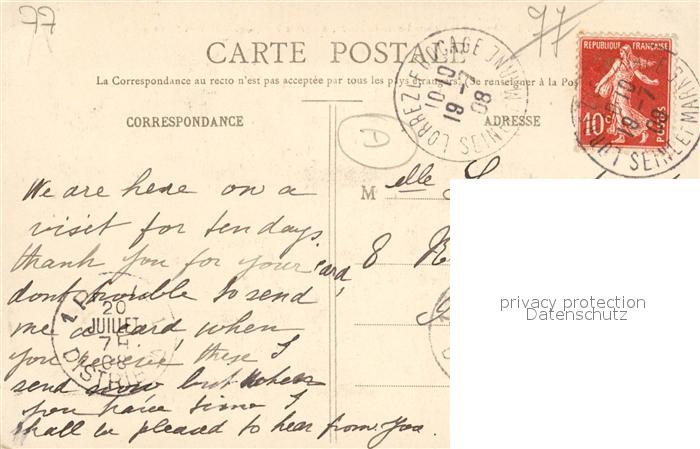 77
77
CARTE POSTALE
La Correspondance au recto n'est pas acceptée par tous les pays étrangers. (Se renseigner à la Pos
CORRESPONDANCE
ADRESSE
A
LORREZ LE BOCAGE SEINE ET MARNE
10-10
19 -7
08
RÉPUBLIQUE FRANÇAISE
10c
POSTES
LORREZ LE BOCAGE SEINE ET MARNE
10-10
19 -7
08
We are here on a
visit for ten days.
thank you for your card,
dont trouble to send
me a card when
you receive these I
send now but when
you have time I
shall be pleased to hear from you.
Melle
8 R
20
JUILLET
7 H
08
DISTRIB
privacy protection
Datenschutz